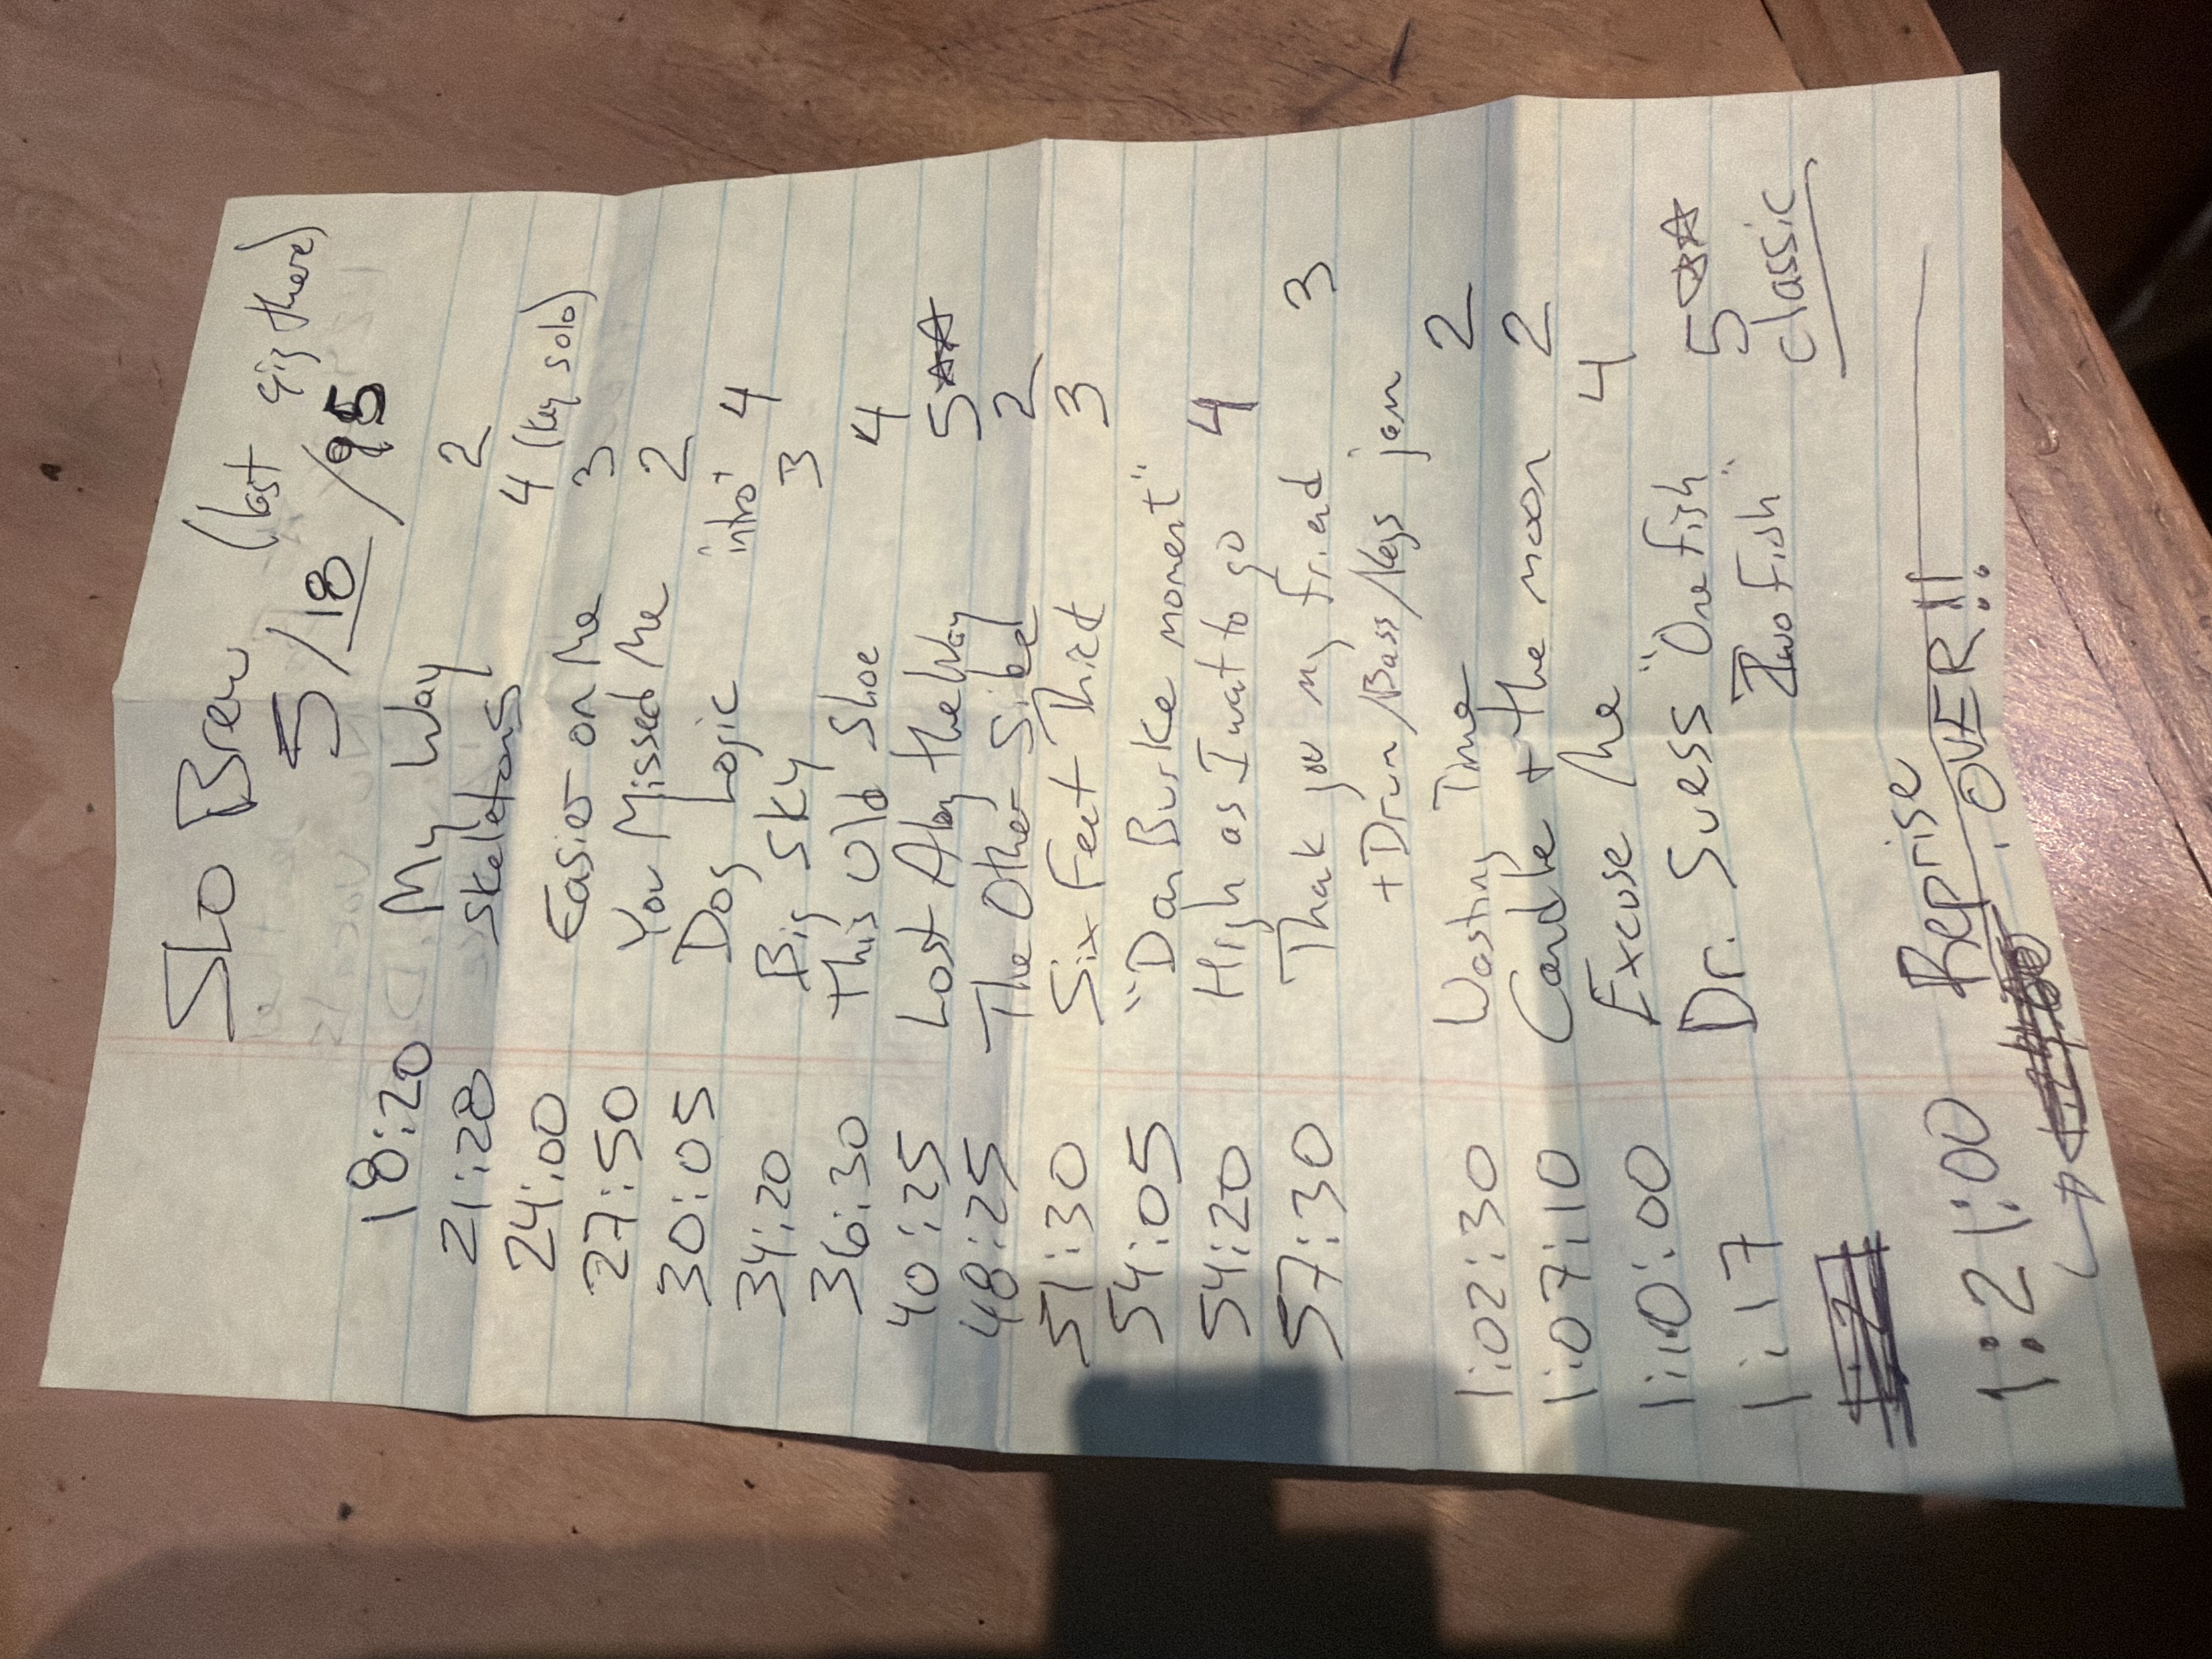 SLO Brew (last gig there)
5/18/95
18:20 My Way 2
21:28 Skeletons 4 (key solo)
24:00 Easier on Me 3
27:50 You Missed Me 2
30:05 Dog Logic "intro" 4
34:20 Big Sky 3
36:30 This Old Shoe 4
40:25 Lost Along the Way 5☆☆
48:25 The Other Side 2
51:30 Six Feet Thick 3
54:05 "Dan Burke moment"
54:20 High as I want to go 4
57:30 Thank you my friend 3
+ Drum/Bass/Keys jam
1:02:30 Wasting Time 2
1:07:10 Candle + the moon 2
1:10:00 Excuse Me 4
1:17 Dr. Suess "One fish 5☆☆
Two Fish" classic
1:21:00 Reprise
OVER!!